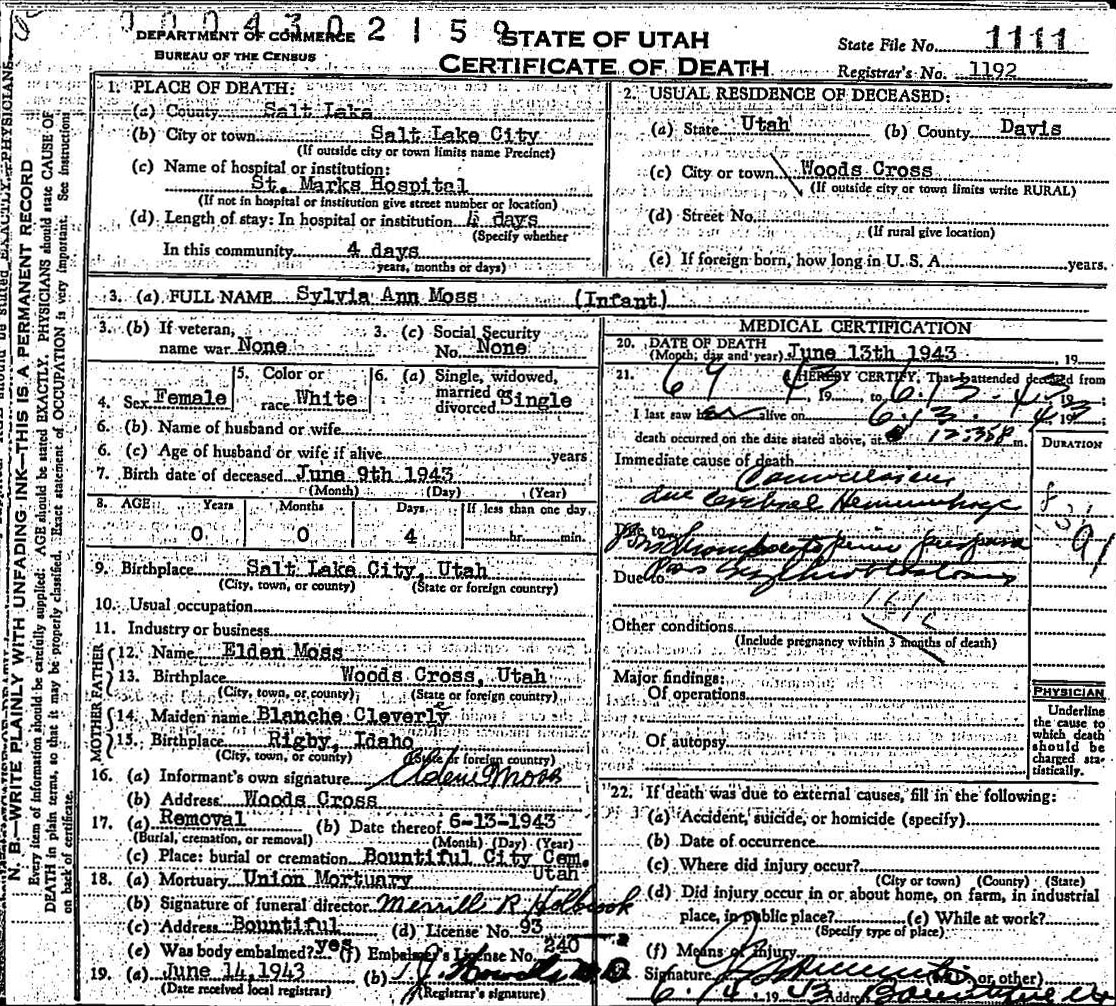 0004302159
DEPARTMENT OF COMMERCE
BUREAU OF THE CENSUS
STATE OF UTAH
CERTIFICATE OF DEATH
State File No. 1111
Registrar's No. 1192
N. B.—WRITE PLAINLY WITH UNFADING INK—THIS IS A PERMANENT RECORD
Every item of information should be carefully supplied. AGE should be stated EXACTLY. PHYSICIANS should state CAUSE OF
DEATH in plain terms, so that it may be properly classified. Exact statement of OCCUPATION is very important. See instructions
on back of certificate.
1. PLACE OF DEATH:
(a) County Salt Lake
(b) City or town Salt Lake City
(If outside city or town limits name Precinct)
(c) Name of hospital or institution:
St. Marks Hospital
(If not in hospital or institution give street number or location)
(d) Length of stay: In hospital or institution 4 days
(Specify whether
In this community 4 days
years, months or days)
2. USUAL RESIDENCE OF DECEASED:
(a) State Utah (b) County Davis
(c) City or town Woods Cross
(If outside city or town limits write RURAL)
(d) Street No.
(If rural give location)
(e) If foreign born, how long in U. S. A. years.
3. (a) FULL NAME Sylvia Ann Moss (Infant)
3. (b) If veteran, name war None
3. (c) Social Security No. None
4. Sex Female
5. Color or race White
6. (a) Single, widowed, married or divorced Single
6. (b) Name of husband or wife
6. (c) Age of husband or wife if alive years
7. Birth date of deceased June 9th 1943
(Month) (Day) (Year)
8. AGE Years Months Days If less than one day
0 0 4 hr. min.
9. Birthplace Salt Lake City, Utah
(City, town, or county) (State or foreign country)
10. Usual occupation
11. Industry or business
FATHER
12. Name Elden Moss
13. Birthplace Woods Cross, Utah
(City, town, or county) (State or foreign country)
MOTHER
14. Maiden name Blanche Cleverly
15. Birthplace Rigby, Idaho
(City, town, or county) (State or foreign country)
16. (a) Informant's own signature Moss
(b) Address Woods Cross
17. (a) Removal (b) Date thereof 6-13-1943
(Burial, cremation, or removal) (Month) (Day) (Year)
(c) Place: burial or cremation Bountiful City Cem.
Utah
18. (a) Mortuary Union Mortuary
(b) Signature of funeral director Merrill R Holbrook
(c) Address Bountiful (d) License No. 93
(e) Was body embalmed? yes (f) Embalmer's License No. 240
19. (a) June 14, 1943 (b)
(Date received local registrar) (Registrar's signature)
MEDICAL CERTIFICATION
20. DATE OF DEATH
(Month, day and year) June 13th 1943, 19
21. I HEREBY CERTIFY, That I attended deceased from
6 9 43, 19 to 6.13.43 19
I last saw her alive on 6.13.43 19
death occurred on the date stated above, at 12:35 P m.
DURATION
Immediate cause of death
Convulsions
due cerebral Hemorrhage
Due to
Due to
Other conditions
(Include pregnancy within 3 months of death)
Major findings:
Of operations
Of autopsy
PHYSICIAN
Underline
the cause to
which death
should be
charged sta-
tistically.
22. If death was due to external causes, fill in the following:
(a) Accident, suicide, or homicide (specify)
(b) Date of occurrence
(c) Where did injury occur?
(City or town) (County) (State)
(d) Did injury occur in or about home, on farm, in industrial
place, in public place? (e) While at work?
(Specify type of place)
(f) Means of Injury
Signature or other)
6.14.1943 Address Bountiful